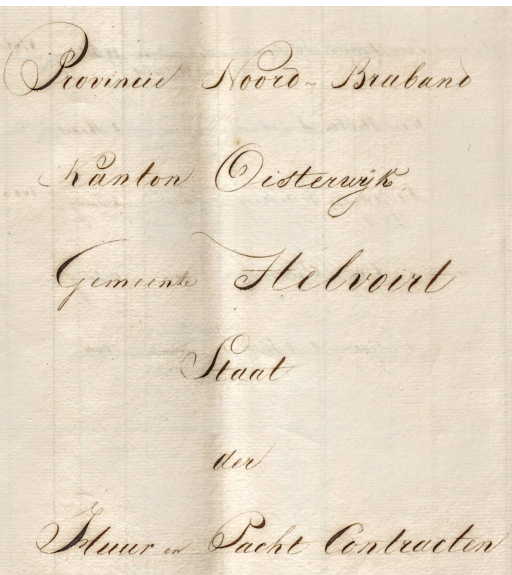 Provincie Noord-Braband
Kanton Oisterwijk.
Gemeente Helvoirt
Staat
der
Huur en Pacht Contracten